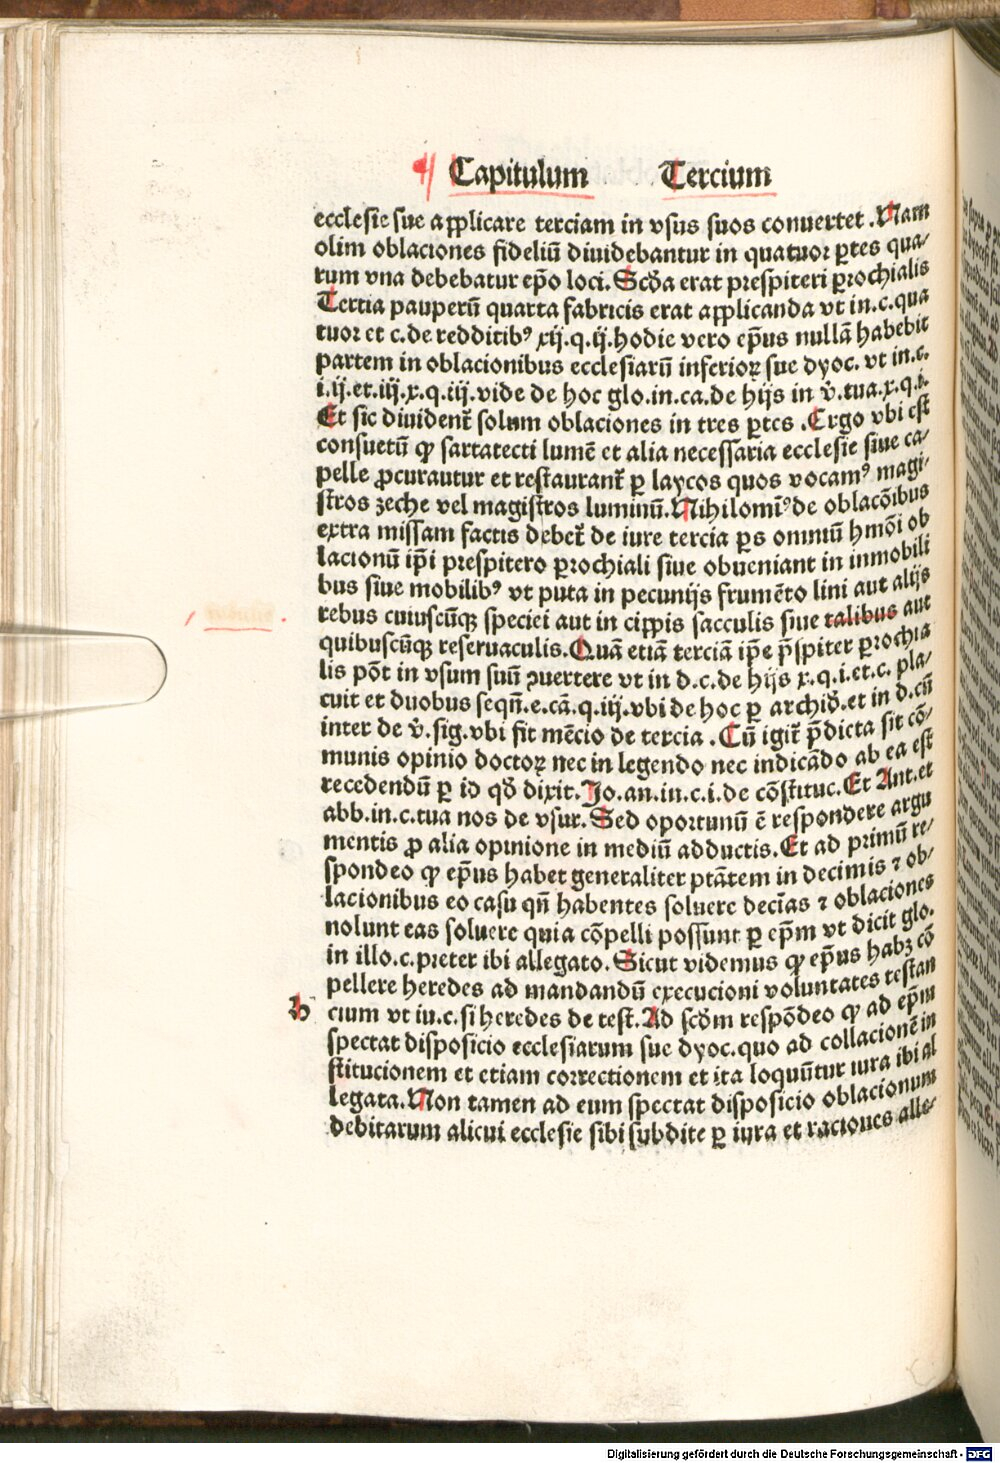 Capitulum Tercium
ecclesie sue applicare terciam in vsus suos conuertet .Nam
olim oblaciones fideliū diuidebantur in quatuor ꝑtes qua/
rum vna debebatur ep̄o loci. Scd̄a erat prespiteri ꝑrochialis
Tertia pauperū quarta fabricis erat applicanda vt in.c.qua
tuor et c.de redditibꝰ xij.q.ij.hodie vero ep̄us nullā habebit
partem in oblacionibus ecclesiarū inferioꝝ sue dyoc. vt in.c.
i.ij.et.iij.x.q.iij.vide de hoc glo.in.ca.de hijs in v̄.tua.x.q.i.
Et sic diuident̄ solum oblaciones in tres ꝑtes .Ergo vbi est
consuetū ꝙ sartatecti lumē et alia necessaria ecclesie siue ca/
pelle ꝓcurautur et restaurant̄ ꝑ laycos quos vocamꝰ magi/
stros zeche vel magistros luminū.Nihilomīꝰ de oblacōibus
extra missam factis debet̄ de iure tercia ꝑs omniū hmōi ob
lacionū ip̄i prespitero ꝑrochiali siue obueniant in inmobili
bus siue mobilibꝰ vt puta in pecunijs frumēto lini aut alijs
rebus cuiuscūqꝫ speciei aut in cippis sacculis siue talibus aut
quibuscūqꝫ reseruaculis.Quā etiā terciā ip̄e p̄spiter ꝑrochia
lis pōt in vsum suū ꝯuertere vt in d.c.de hijs x.q.i.et.c. pla/
cuit et duobus seqn̄.e.cā.q.iij.vbi de hoc ꝑ archid̄.et in d.cū
inter de v̄.sig.vbi fit mēcio de tercia .Cū igit̄ p̄dicta sit cō/
munis opinio doctoꝝ nec in legendo nec indicādo ab ea est
recedendū ꝑ id qd̄ dixit.Jo.an.in.c.i.de cōstituc.Et Ant.et
abb.in.c.tua nos de vsur. Sed oportunū ē respondere argu
mentis ꝓ alia opinione in mediū adductis.Et ad primū re/
spondeo ꝙ ep̄us habet generaliter ptātem in decimis ⁊ ob/
lacionibus eo casu qn̄ habentes soluere decīas ⁊ oblaciones
nolunt eas soluere quia cōpelli possunt ꝑ ep̄m vt dicit glo.
in illo.c.preter ibi allegato. Sicut videmus ꝙ ep̄us habꝫ cō
pellere heredes ad mandandū execucioni voluntates testan
cium vt iu.c.si heredes de test. Ad scd̄m respōdeo ꝙ ad ep̄m
spectat disposicio ecclesiarum sue dyoc.quo ad collacionē in
stitucionem et etiam correctionem et ita loquūtur iura ibi al
legata.Non tamen ad eum spectat disposicio oblacionum
debitarum alicui ecclesie sibi subdite ꝑ iura et raciones alle/
b
Digitalisierung gefördert durch die Deutsche Forschungsgemeinschaft - DFG